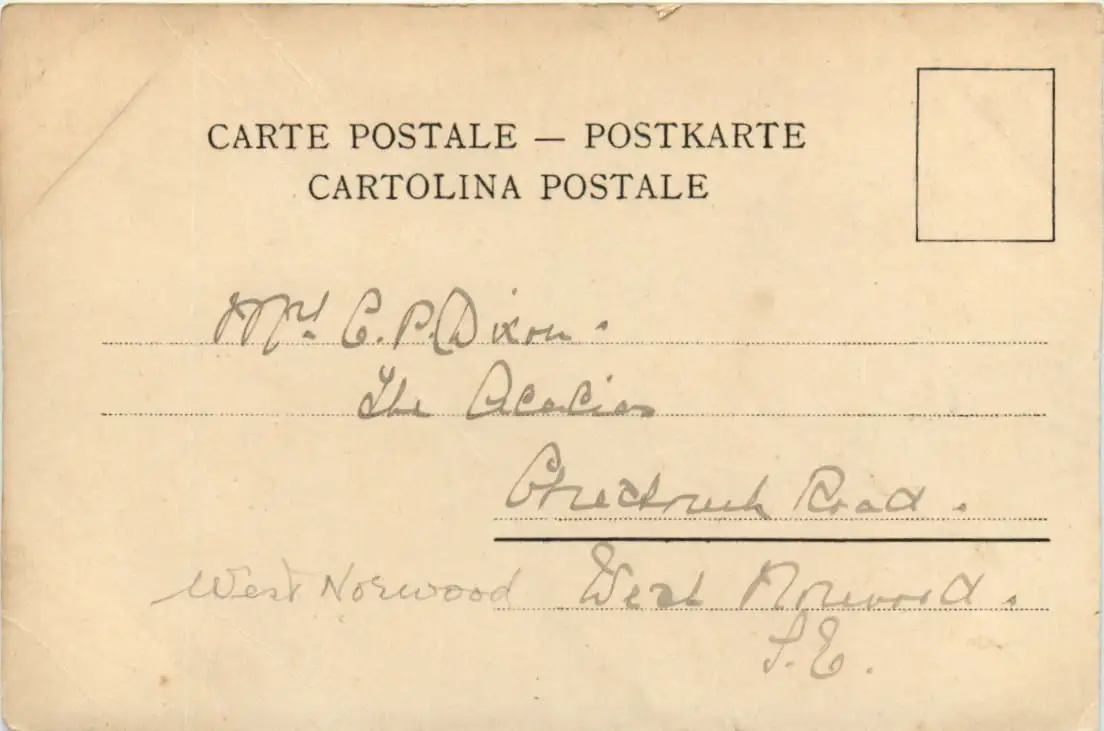 CARTE POSTALE — POSTKARTE
CARTOLINA POSTALE
Mrs. C. P. Dixon.
The Acacias
Road.
West Norwood West Norwood.
S.E.